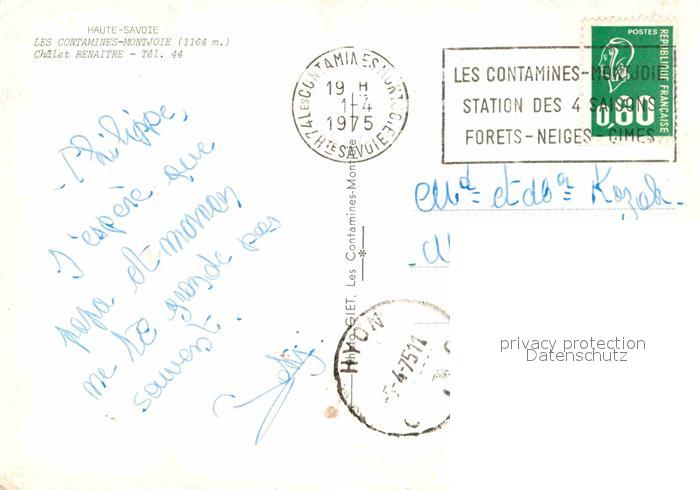 HAUTE-SAVOIE
LES CONTAMINES-MONTJOIE (1164 m.)
Châlet RENAITRE - Tél. 44
LES CONTAMINES MONTJOIE
19 H
1-4
1975
74 HTE SAVOIE
LES CONTAMINES-MONTJOIE
STATION DES 4 SAISONS
FORETS-NEIGES-CIMES
POSTES
REPUBLIQUE FRANÇAISE
0,60
Philippe,
J'espère que
papa et maman
ne te gronde pas
souvent.
Photo GIET, Les Contamines-Montjoie
et
Kozak
HYON
-4-75 11
privacy protection
Datenschutz